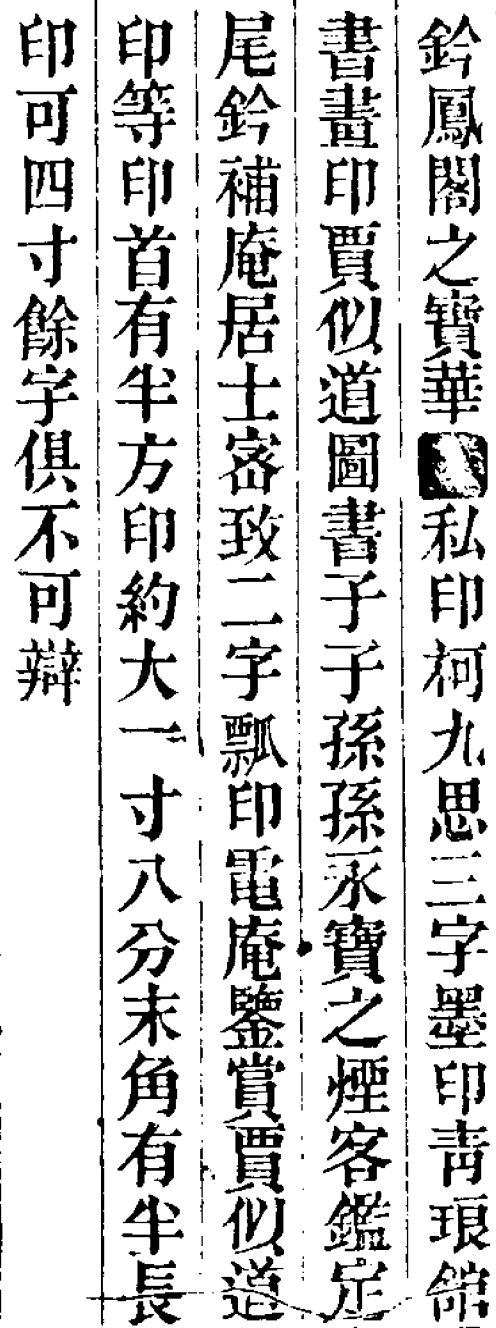 鈐鳳閣之寶華私印柯九思三字墨印青琅館
書畫印賈似道圖書子子孫孫永寶之煙客鑑定
尾鈐補庵居士密致二字瓢印黽庵鑒賞賈似道
印等印首有半方印約大一寸八分末角有半長
印可四寸餘字俱不可辯